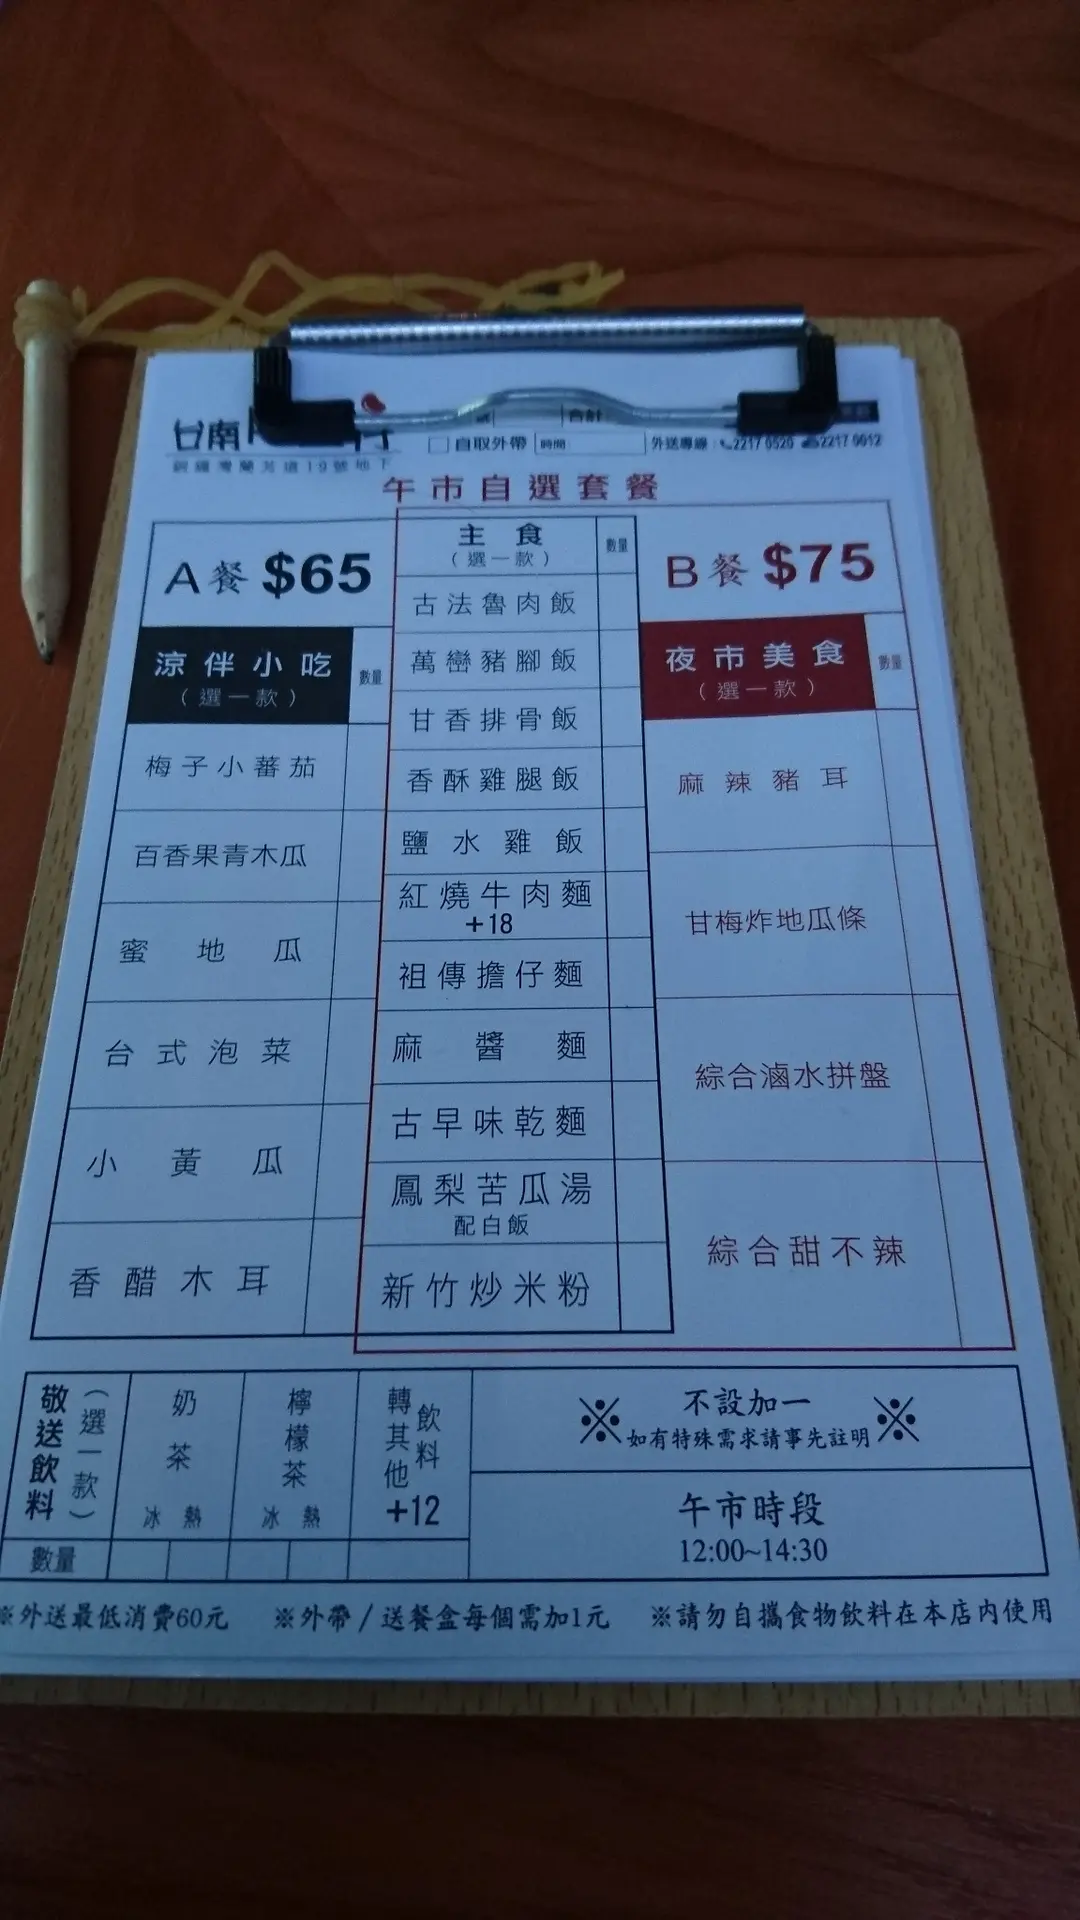 台南
合計
自取外帶 時間 外送專線 2217 0520 2217 0012
銅鑼灣蘭芳道19號地下
午市自選套餐
A餐 $65
涼伴小吃 數量
（選一款）
梅子小蕃茄
百香果青木瓜
蜜地瓜
台式泡菜
小黃瓜
香醋木耳
主食 數量
（選一款）
古法魯肉飯
萬巒豬腳飯
甘香排骨飯
香酥雞腿飯
鹽水雞飯
紅燒牛肉麵
+18
祖傳擔仔麵
麻醬麵
古早味乾麵
鳳梨苦瓜湯
配白飯
新竹炒米粉
B餐 $75
夜市美食 數量
（選一款）
麻辣豬耳
甘梅炸地瓜條
綜合滷水拼盤
綜合甜不辣
敬送飲料
（選一款）
奶茶
冰 熱
檸檬茶
冰 熱
轉其他飲料
+12
數量
※不設加一※
如有特殊需求請事先註明
午市時段
12:00~14:30
※外送最低消費60元 ※外帶/送餐盒每個需加1元 ※請勿自攜食物飲料在本店內使用